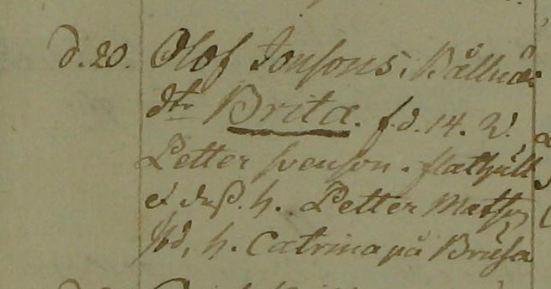 d. 20. Olof Jonsons. i Bållnäs
dtr Brita. f. d. 14. W.
Petter Svenson. flathult
et dess h. Petter Matson
ibd, h. Catrina på Brusa